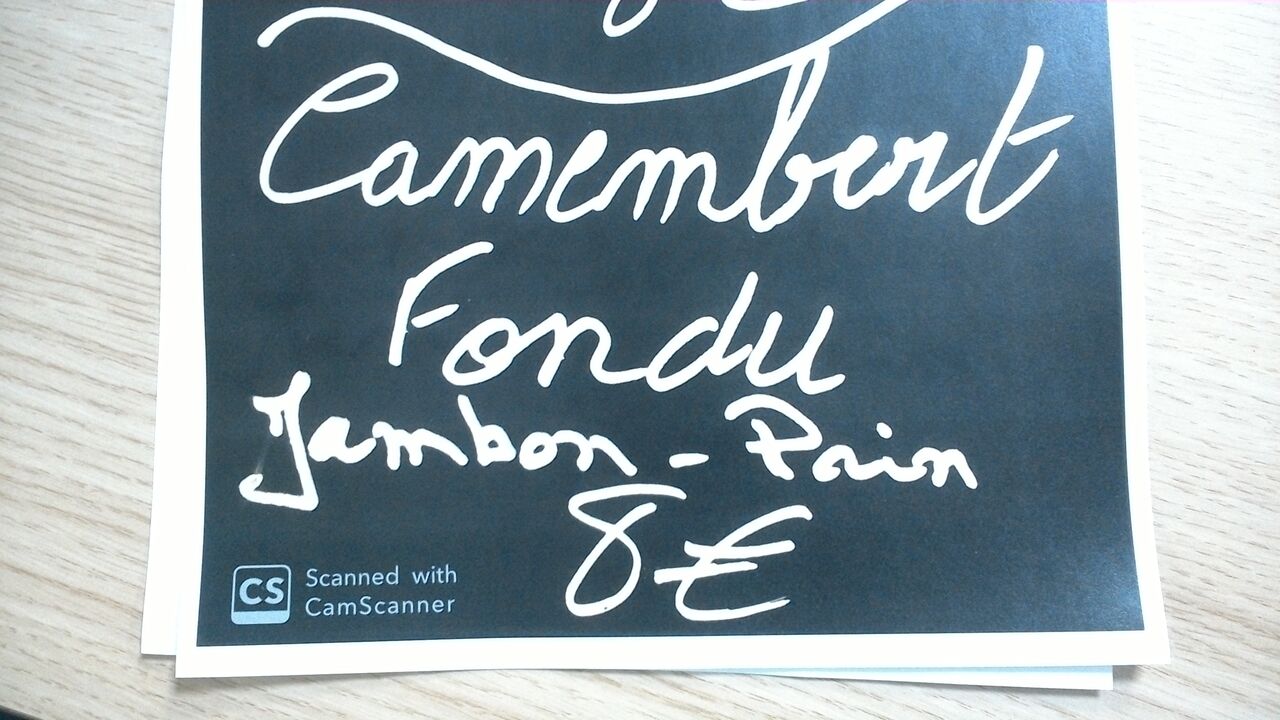 Camembert
Fondu
Jambon - Pain
8 €
CS Scanned with
CamScanner